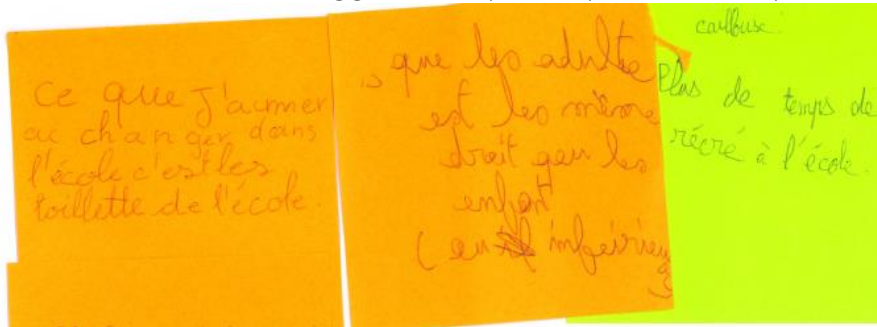 ce que J'aimer
ac changer dans
l'école c'est les
toillette de l'école.
que les adulte
est les même
droit que les
enfant
(en inférieur
carlbuse.
Plus de temps de
récré à l'école.